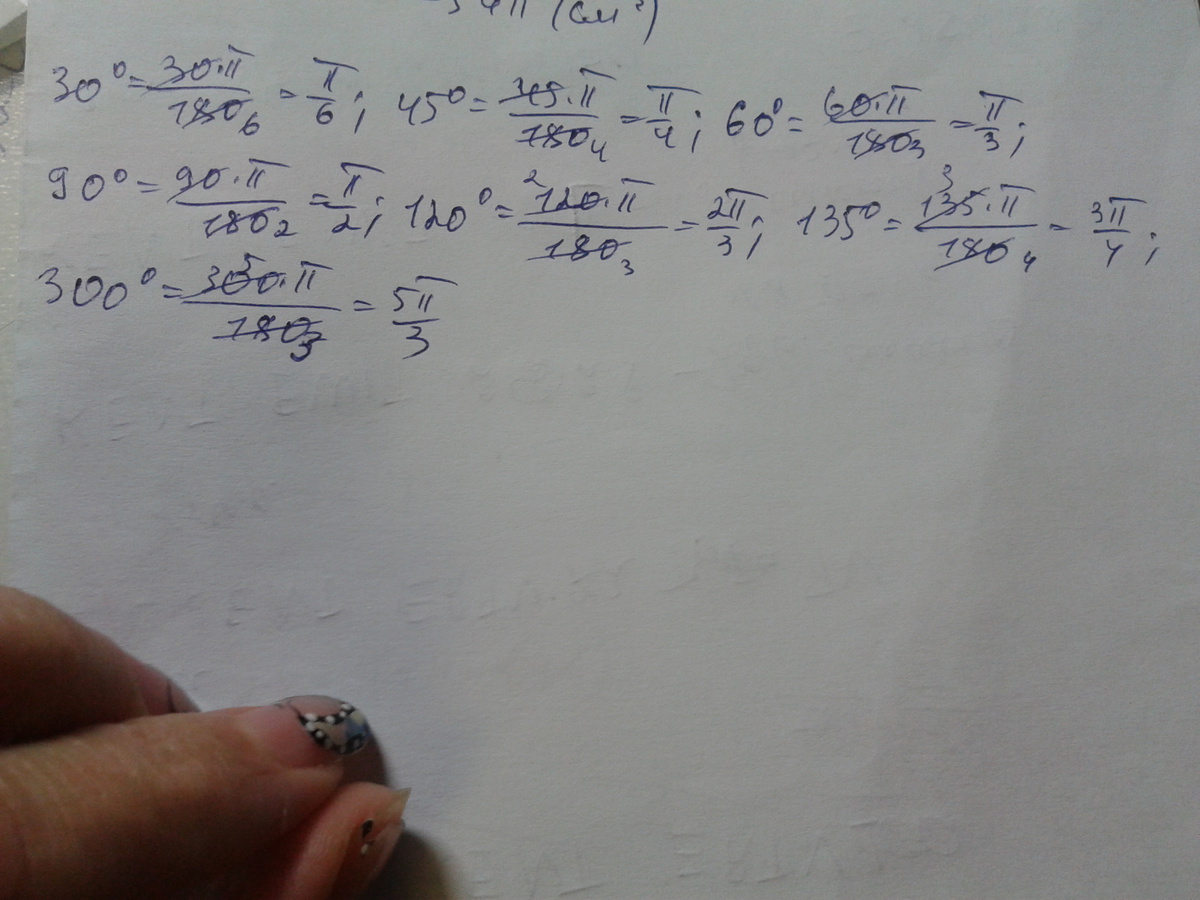 54π (см²)
30° = 30·π/180 6 = π/6; 45° = 45·π/180 4 = π/4; 60° = 60·π/180 3 = π/3;
90° = 90·π/180 2 = π/2; 120° = 2 120·π/180 3 = 2π/3; 135° = 3 135·π/180 4 = 3π/4;
300° = 5 300·π/180 3 = 5π/3